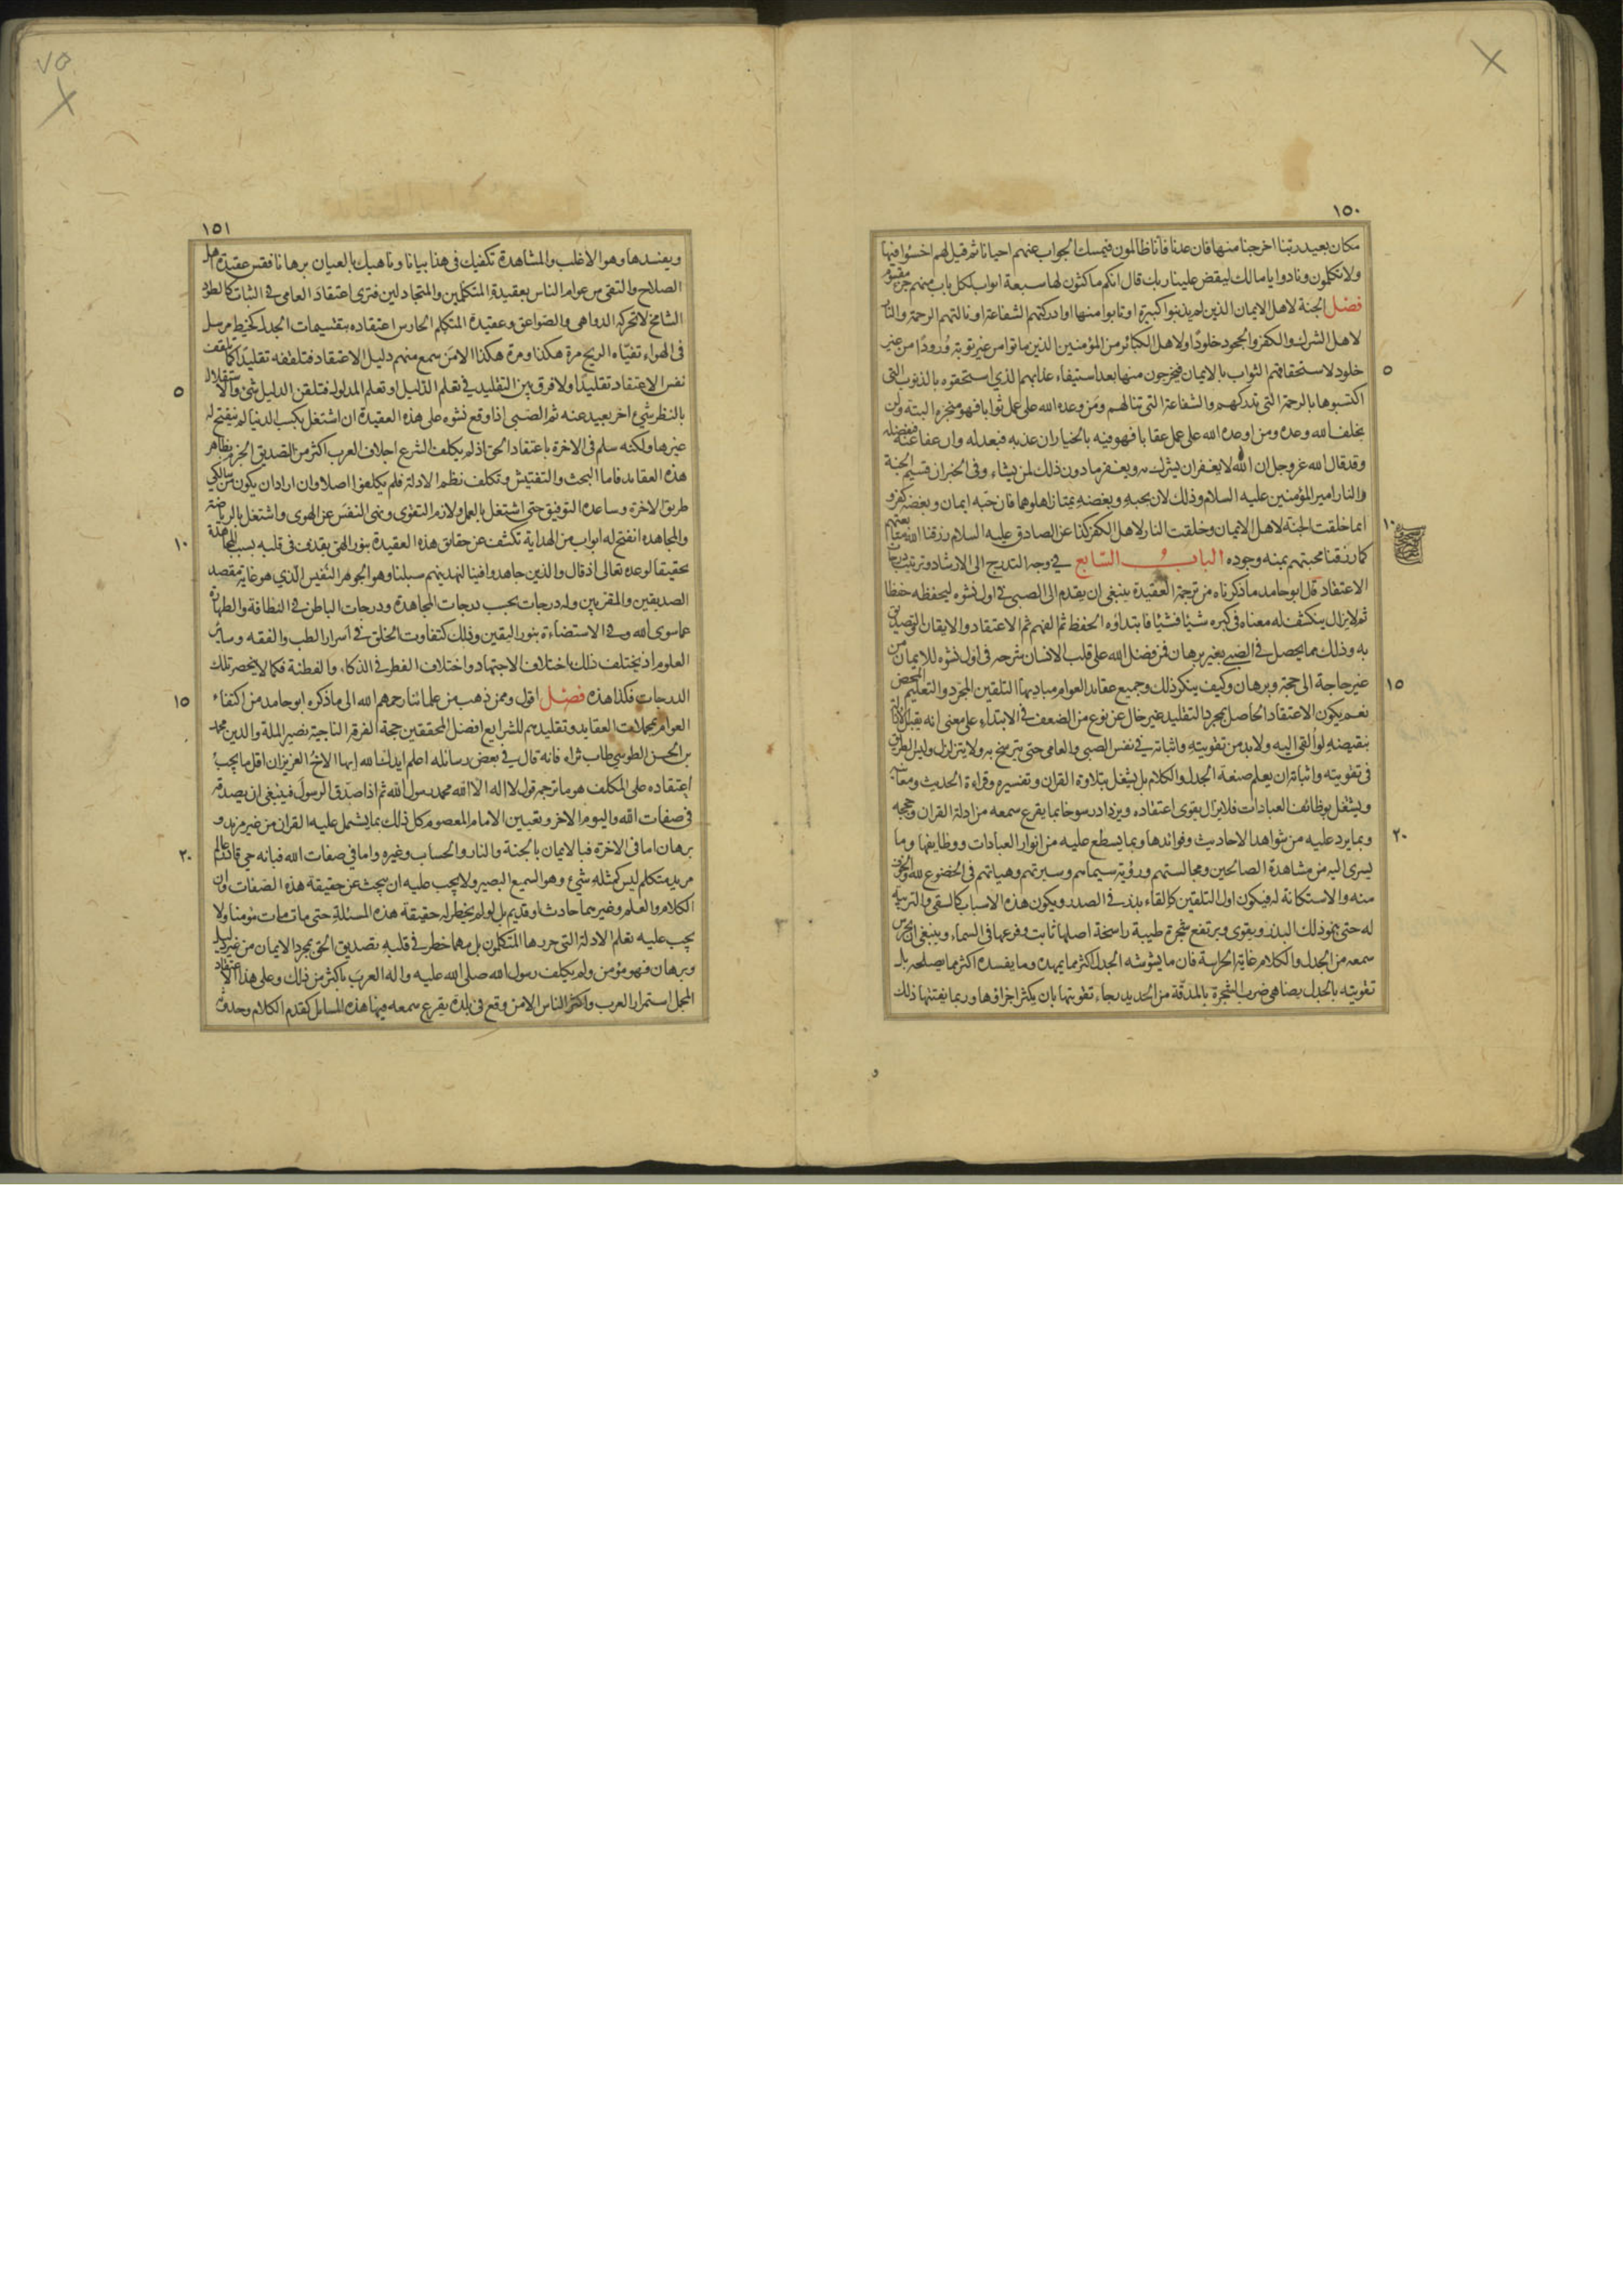 ١٥٠
مكان بعيد ربنا اخرجنا منها فان عدنا فانا ظالمون فيمسك الجواب عنهم احيانا ثم قيل لهم اخسؤا فيها
ولا تكلمون ونادوا يا مالك ليقض علينا ربك قال انكم ماكثون لها سبعة ابواب لكل باب منهم جزء مقسوم
فصل الجنة لاهل الايمان الذين لم يذنبوا كبيرة او تابوا منها او ادركتهم الشفاعة او نالتهم الرحمة والنار
لاهل الشرك والكفر والجحود خلودًا ولاهل الكبائر من المؤمنين الذين ماتوا من غير توبة ورودًا من غير
٥
خلود لاستحقاقهم الثواب بالايمان فيخرجون منها بعد استيفاء عذابهم الذي استحقوه بالذنوب التى
اكتسبوها بالرحمة التى تدركهم والشفاعة التى تنالهم ومن وعده الله على عمل ثوابا فهو منجزه البتة ولن
يخلف الله وعده ومن اوعده الله على عمل عقابا فهو فيه بالخيار ان عذبه فبعدله وان عفا عنه فبفضله
وقد قال الله عز وجل ان الله لا يغفر ان يشرك به ويغفر ما دون ذلك لمن يشاء وفى الخبر ان قسيم الجنة
والنار امير المؤمنين عليه السلام وذلك لان بحبه وبغضه يمتاز اهلوهما فان حبه ايمان وبغضه كفر و
١٠
انما خلقت الجنة لاهل الايمان وخلقت النار لاهل الكفر كذا عن الصادق عليه السلام رزقنا الله شفاعتهم
كما رزقنا محبتهم بمنه وجوده الباب السابع في وجه التدريج الى الارشاد وترتيب درجات
الاعتقاد قال ابو حامد ما ذكرناه من ترجمة العقيدة ينبغى ان يقدم الى الصبى في اول نشوه ليحفظه حفظا
ثم لا يزال ينكشف له معناه فى كبره شيئا فشيئا فابتداؤه الحفظ ثم الفهم ثم الاعتقاد والايقان والتصديق
به وذلك مما يحصل في الصبى بغير برهان فمن فضل الله على قلب الانسان شرحه فى اول نشوه للايمان من
١٥
غير حاجة الى حجة وبرهان وكيف ينكر ذلك وجميع عقايد العوام مباديها التلقين المجرد والتعليم المحض
نعم يكون الاعتقاد الحاصل بمجرد التقليد غير خال عن نوع من الضعف في الابتداء على معنى انه يقبل الازالة
بنقيضه لو القى اليه ولابد من تقويته واثباته في نفس الصبى والعامى حتى يترسخ به ولا يتزلزل وليس الطريق
فى تقويته واثباته ان يعلم صنعة الجدل والكلام بل يشغل بتلاوة القران وتفسيره وقراءة الحديث ومعانيه
ويشغل بوظائف العبادات فلا يزال يقوى اعتقاده ويزداد رسوخا بما يقرع سمعه من ادلة القران وحججه
٢٠
وبما يرد عليه من شواهد الاحاديث وفوائدها وبما يسطع عليه من انوار العبادات ووظايفها وما
يسرى اليه من مشاهدة الصالحين ومجالستهم ورؤية سيماهم وسيرتهم وهياتهم فى الخضوع لله والخوف
منه والاستكانة له فيكون اول التلقين كالقاء بذر في الصدر ويكون هذه الاسباب كالسقى والتربية
له حتى ينمو ذلك البذر ويقوى ويرتفع شجرة طيبة راسخة اصلها ثابت وفرعها فى السماء وينبغى ان يحرس
سمعه من الجدل والكلام غاية الحراسة فان ما يشوشه الجدل اكثر مما يمهده وما يفسده اكثر مما يصلحه بل
تقويته بالجدل يضاهى ضرب الشجرة بالمدقة من الحديد رجاء تقويتها بان يكثر اجزاؤها وربما يفتتها ذلك
و
٧٥
١٥١
ويفسدها وهو الاغلب والمشاهدة تكفيك فى هذا بيانا وناهيك بالعيان برهانا فقس عقيدة اهل
الصلاح والتقى من عوام الناس بعقيدة المتكلمين والمتجادلين فترى اعتقاد العامى في الثبات كالطود
الشامخ لا تحركه الدواهى والصواعق وعقيدة المتكلم الحارس اعتقاده بتقسيمات الجدل كخيط مرسل
فى الهواء تفيئه الريح مرة هكذا ومرة هكذا الا من سمع منهم دليل الاعتقاد فتلقفه تقليدًا كما تلقف
٥
نفس الاعتقاد تقليدًا ولا فرق بين التقليد في تعلم الدليل او تعلم المدلول فتلقن الدليل شئ والاستقلال
بالنظر شئ اخر بعيد عنه ثم الصبى اذا وقع نشوه على هذه العقيدة ان اشتغل بكسب الدنيا لم ينفتح له
غيرها ولكنه سلم فى الاخرة باعتقاد الحق اذ لم يكلف الشرع اجلاف العرب اكثر من التصديق الجزم بظاهر
هذه العقايد فاما البحث والتفتيش وتكلف نظم الادلة فلم يكلفوا اصلا وان اراد ان يكون من سالكي
طريق الاخرة وساعده التوفيق حتى اشتغل بالعمل ولازم التقوى ونهى النفس عن الهوى واشتغل بالرياضة
١٠
والمجاهدة انفتح له ابواب من الهداية تكشف عن حقائق هذه العقيدة بنور الهى يقذف فى قلبه بسبب المجاهدة
تحقيقا لوعده تعالى اذ قال والذين جاهدوا فينا لنهدينهم سبلنا وهو الجوهر النفيس الذي هو غاية مقصد
الصديقين والمقربين وله درجات بحسب درجات المجاهدة ودرجات الباطن في النظافة والطهارة
عما سوى الله وفي الاستضاءة بنور اليقين وذلك كتفاوت الخلق في اسرار الطب والفقه وسائر
العلوم اذ يختلف ذلك باختلاف الاجتهاد واختلاف الفطر في الذكاء والفطنة فكما لا ينحصر تلك
١٥
الدرجات فكذا هذه فصل اقول وممن ذهب من علمائنا رحمهم الله الى ما ذكره ابو حامد من اكتفاء
العوام بمجملات العقايد وتقليدهم للشرايع افضل المحققين حجة الفرقة الناجية نصير الملة والدين محمد
بن الحسن الطوسي طاب ثراه فانه قال في بعض رسائله اعلم ايدك الله ايها الاخ العزيز ان اقل ما يجب
اعتقاده على المكلف هو ما ترجمه قول لا اله الا الله محمد رسول الله ثم اذا صدق الرسول فينبغى ان يصدقه
فى صفات الله واليوم الاخر وتعيين الامام المعصوم كل ذلك بما يشمل عليه القران من غير مزيد و
٢٠
برهان اما فى الاخرة فبالايمان بالجنة والنار والحساب وغيره واما في صفات الله فبانه حي قادر عالم
مريد متكلم ليس كمثله شئ وهو السميع البصير ولا يجب عليه ان يبحث عن حقيقة هذه الصفات وان
الكلام والعلم وغيرهما حادث او قديم بل لو لم يخطر له حقيقة هذه المسئلة حتى مات مات مؤمنا ولا
يجب عليه تعلم الادلة التى حررها المتكلمون بل مهما خطر في قلبه تصديق الحق بمجرد الايمان من غير دليل
وبرهان فهو مؤمن ولم يكلف رسول الله صلى الله عليه واله العرب باكثر من ذلك وعلى هذا الاعتقاد
المجمل استمرار العرب واكثر الناس الا من وقع فى بلدة يقرع سمعه فيها هذه المسايل كقدم الكلام وحدوثه